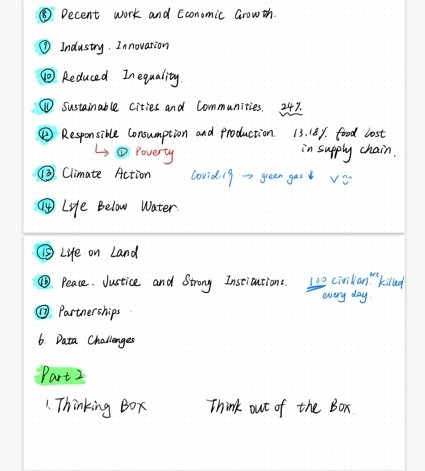 ⑧ Decent Work and Economic Growth.
⑨ Industry. Innovation
⑩ Reduced Inequality.
⑪ Sustainable Cities and Communities. 24%
⑫ Responsible Consumption and Production. 13.18% food lost
in supply chain.
↳ ① Poverty
⑬ Climate Action Covid-19 → green gas ↓ V
⑭ Life Below Water.
⑮ Life on Land
⑯ Peace. Justice and Strong Institutions. 100 civilian are killed
every day.
⑰ Partnerships
6. Data Challenges
Part 2
1. Thinking Box Think out of the Box.